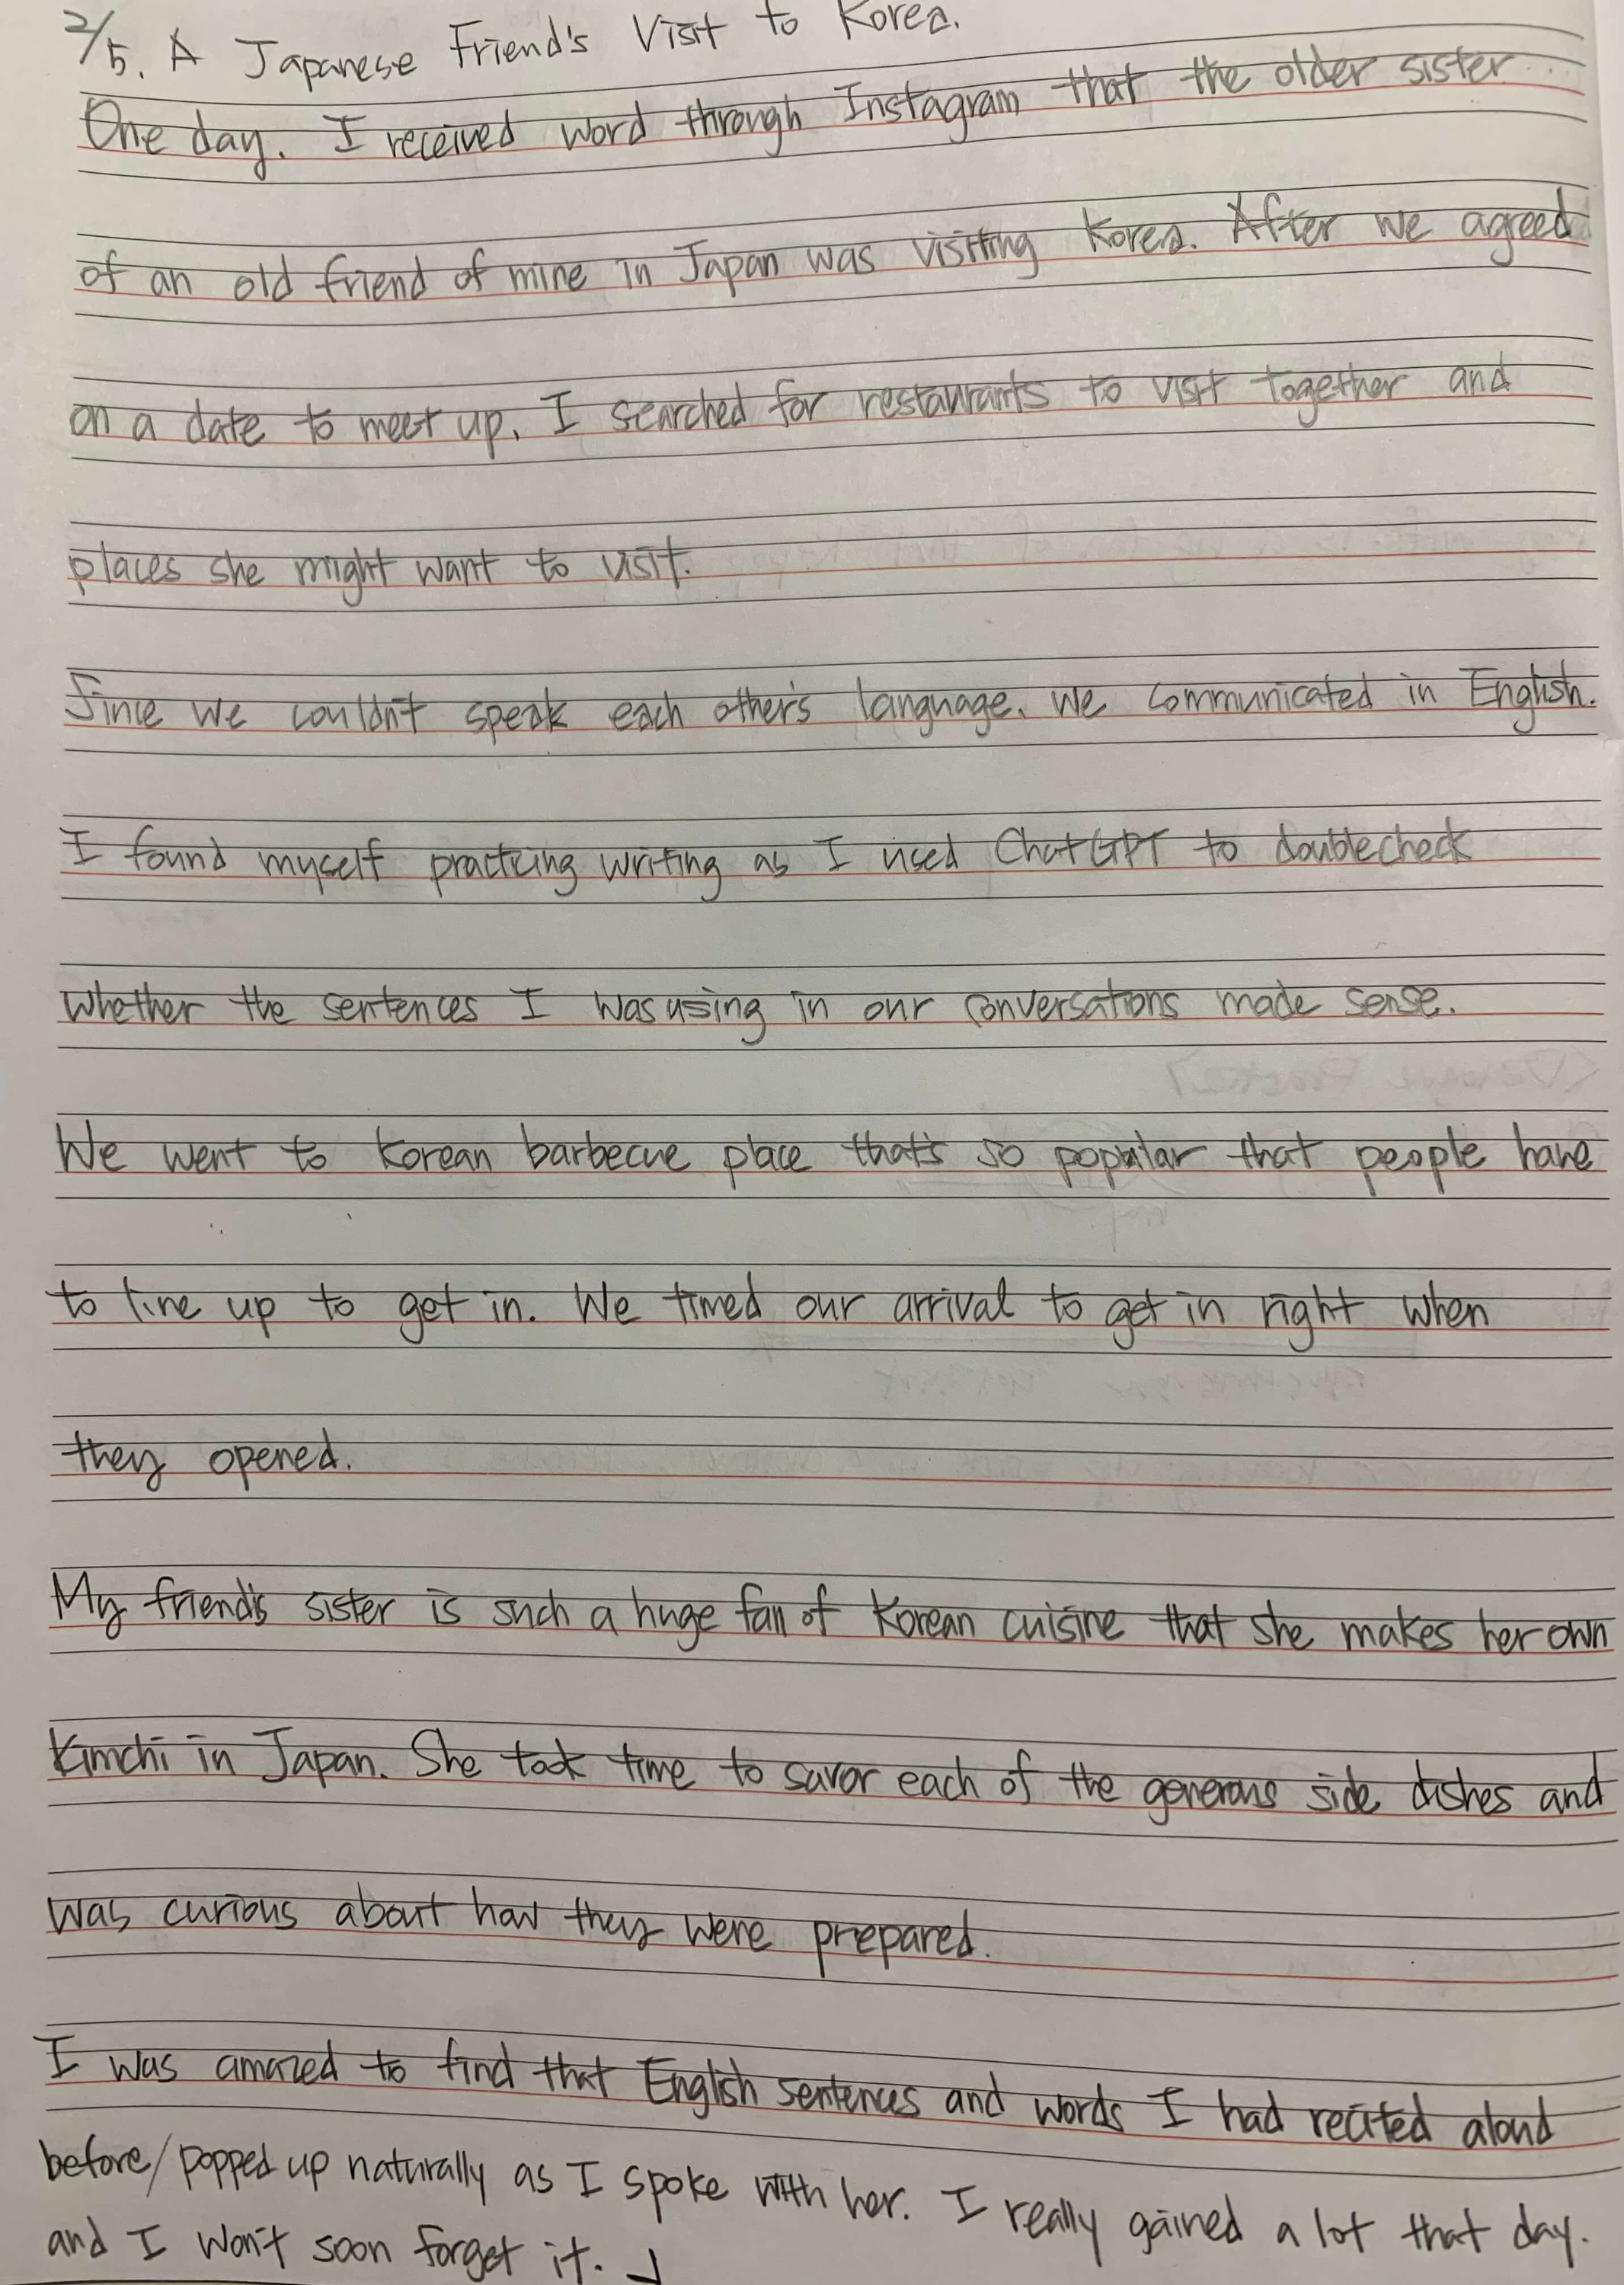 2/5. A Japanese Friend's Visit to Korea.
One day. I received word through Instagram that the older sister
of an old friend of mine in Japan was visiting Korea. After we agreed
on a date to meet up, I searched for restaurants to visit together and
places she might want to visit.
Since we couldn't speak each other's language, we communicated in English.
I found myself practicing writing as I used ChatGPT to doublecheck
whether the sentences I was using in our conversations made sense.
We went to Korean barbecue place that's so popular that people have
to line up to get in. We timed our arrival to get in right when
they opened.
My friend's sister is such a huge fan of Korean cuisine that she makes her own
Kimchi in Japan. She took time to savor each of the generous side dishes and
was curious about how they were prepared.
I was amazed to find that English sentences and words I had recited aloud
before/popped up naturally as I spoke with her. I really gained a lot that day.
and I won't soon forget it.